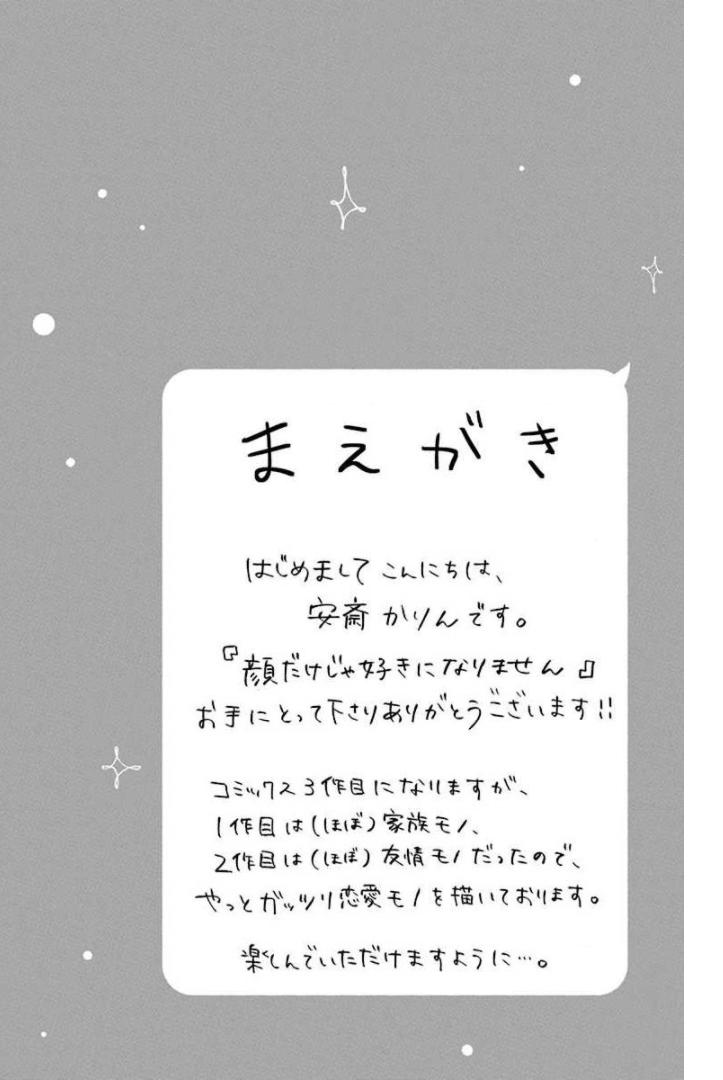 まえがき
はじめまして こんにちは、
安斎 かりんです。
『顔だけじゃ好きになりません』
お手にとって下さりありがとうございます!!
コミックス3作目になりますが、
1作目は(ほぼ)家族モノ、
2作目は(ほぼ)友情モノだったので、
やっとガッツリ恋愛モノを描いております。
楽しんでいただけますように…。